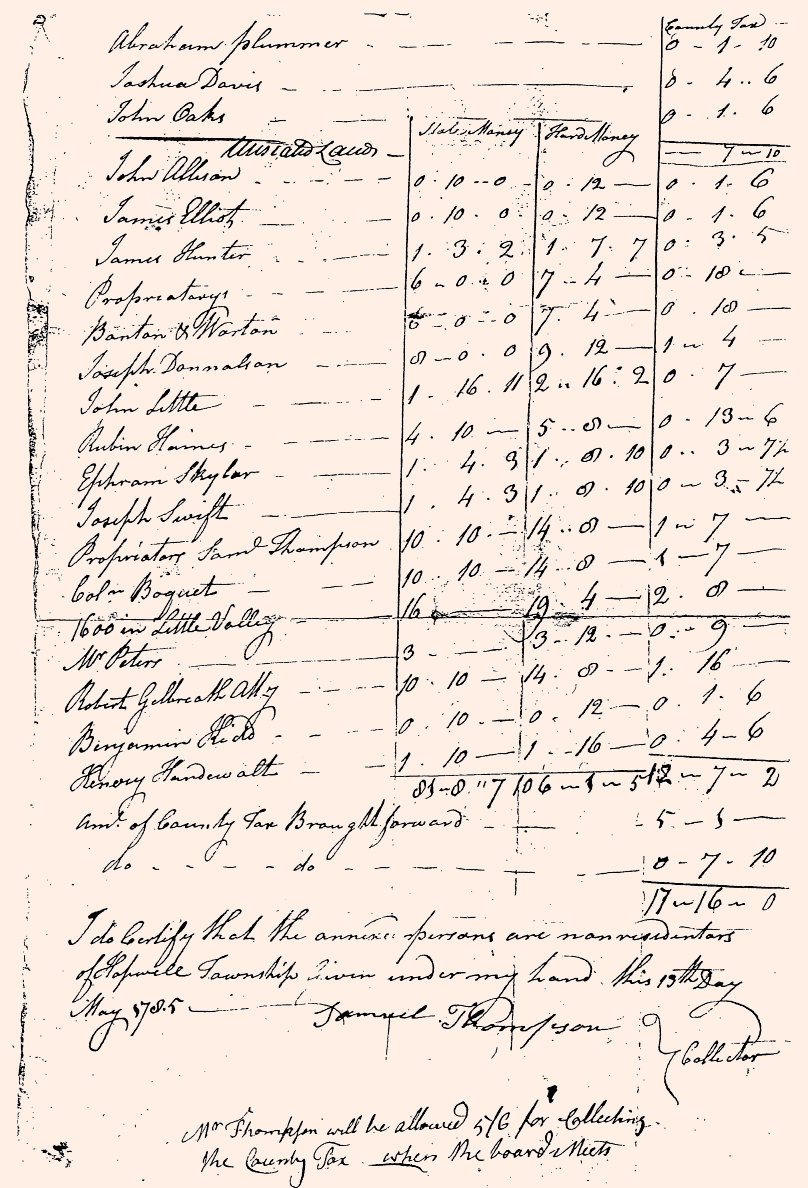 County Tax
Abraham plummer - - - 0 - 1 - 10
Joshua Davis - 0 - 4 .. 6
John Oaks - - - 0 . 1 . 6
State Money Hard Money
Unseated Lands - — 7 - 10
John Allison 0 . 10 - 0 0 . 12 — 0 . 1 . 6
James Elliot 0 . 10 . 0 0 . 12 — 0 . 1 . 6
James Hunter 1 . 3 . 2 1 . 7 . 7 0 . 3 . 5
Propriatorys 6 - 0 - 0 7 - 4 — 0 - 18 —
Banton & Warton 6 - 0 - 0 7 . 4 — 0 . 18 —
Joseph Donnalson 8 - 0 . 0 9 . 12 — 1 - 4 —
John Little 1 . 16 . 11 2 " 16 : 2 0 . 7 —
Rubin Haines 4 . 10 — 5 .. 8 — 0 . 13 - 6
Ephram Skylar 1 . 4 . 3 1 . 8 . 10 0 .. 3 - 7½
Joseph Swift 1 . 4 . 3 1 . 8 . 10 0 - 3 - 7½
Propriators Saml Thompson 10 . 10 . - 14 .. 8 — 1 - 7 —
Coln Boquet 10 10 — 14 .. 8 — 1 — 7 —
1600 in Little Valley 16 — 19 . 4 — 2 . 8 —
Mr Peters 3 — 3 - 12 . — 0 . - 9 —
Robert Gelbreath Atty 10 . 10 — 14 . 8 — 1 . 16 —
Binjamin Kidd 0 . 10 . — 0 . 12 — 0 . 1 . 6
Henery Handewalt 1 . 10 — 1 . - 16 — 0 . 4 - 6
81 - 8 " 7 106 - 1 - 5 12 - 7 - 2
Amt. of County Tax Brought forward - — - 5 - 1 —
do - - - - do - - - - 0 - 7 - 10
17 - 16 - 0
I do Certify that the annexed persons are nonresidentors
of Hopwell Township Given under my hand this 13th Day
May 1785 - Samuel Thompson
Collector
Mr Thompson will be allowed 5/6 for Collecting
the County Tax when the board Meets